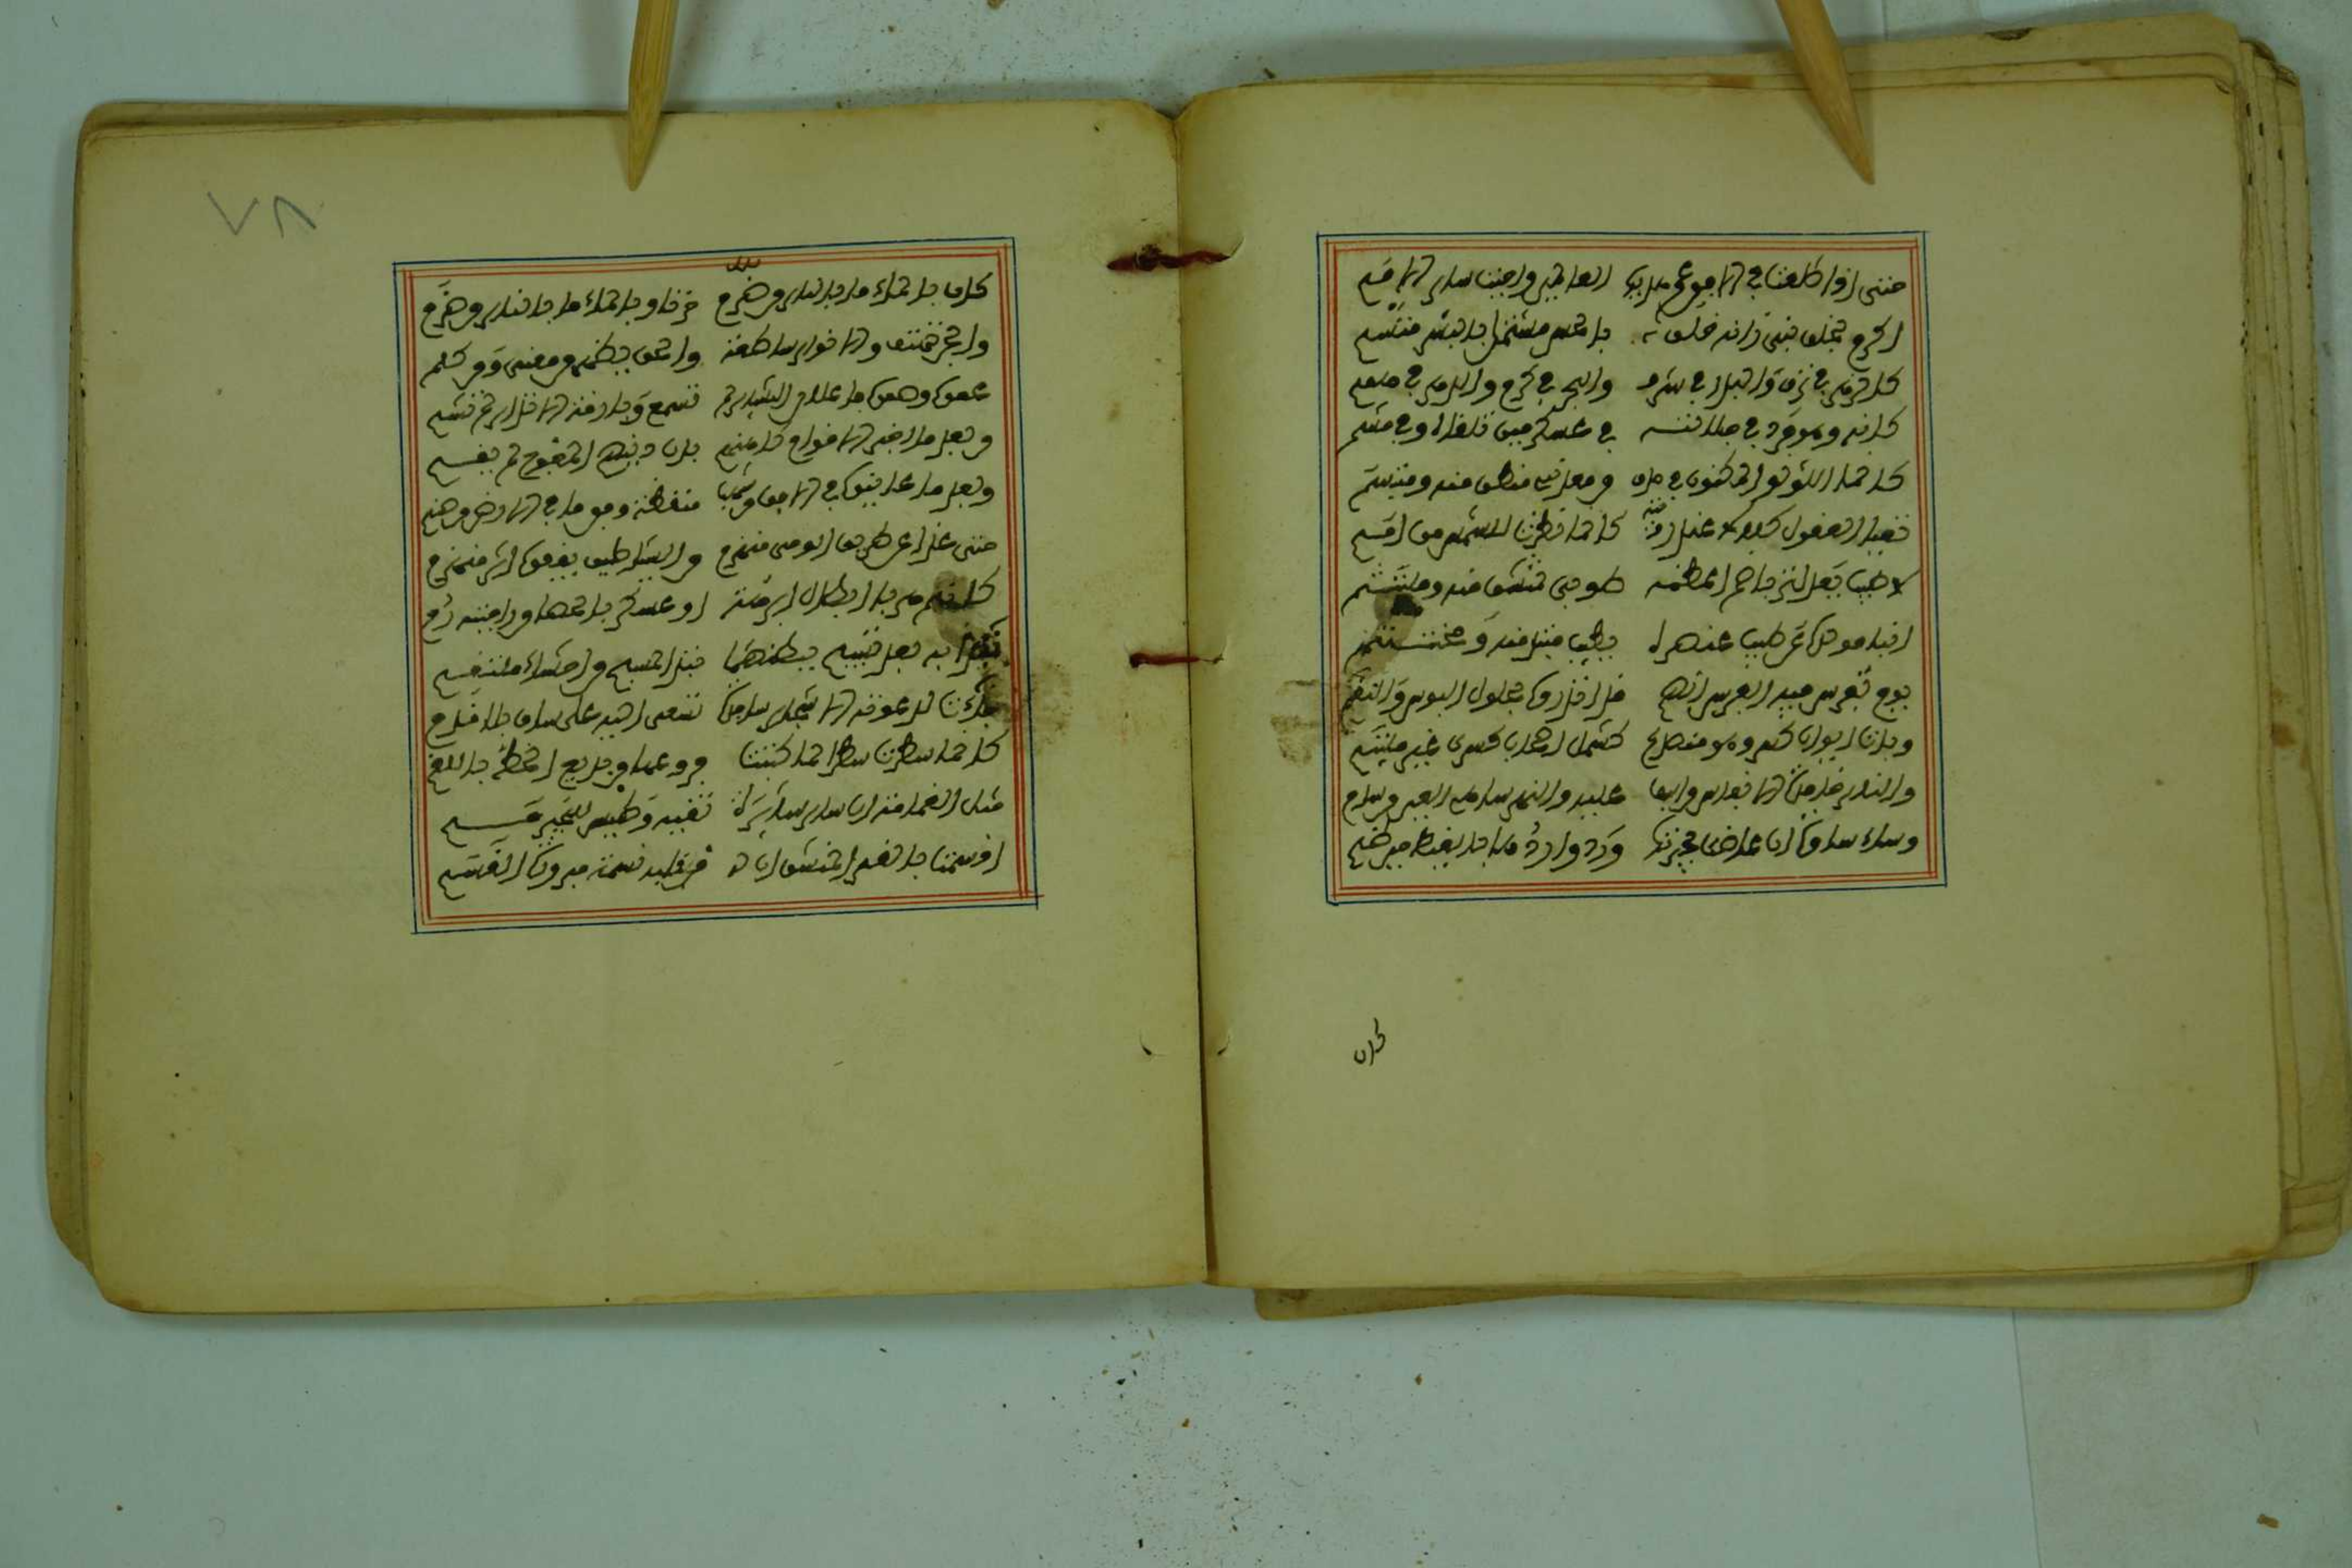 حتى اذا طلعت في الافق عم هداها العالمين واحيت ساير الامم
اكرم بخلق نبي زانه خلق بالحسن مشتمل بالبشر متسم
كالزهر في ترف والبدر في شرف والبحر في كرم والدهر في همم
كانه وهو فرد في جلالته في عسكر حين تلقاه وفي حشم
كانما اللؤلؤ المكنون في صدف من معدني منطق منه ومبتسم
تعيا العقول كلالا عند رؤيته كانما نظرت للشمس من امم
لا طيب يعدل تربا ضم اعظمه طوبى لمنتشق منه وملتثم
ابان مولده عن طيب عنصره يا طيب مبتدا منه ومختتم
يوم تفرس فيه الفرس انهم قد انذروا بحلول البوس والنقم
وبات ايوان كسرى وهو منصدع كشمل اصحاب كسرى غير ملتئم
والنار خامدة الانفاس من اسف عليه والنهر ساهي العين من سدم
وساء ساوة ان غاضت بحيرتها ورد واردها بالغيظ حين ظمي
كان
٧٨
بلل
كان بالماء ما بالنار من ضرم حزنا وبالماء ما بالنار من ضرم
والجن تهتف والانوار ساطعة والحق يظهر من معنى ومن كلم
عموا وصموا فاعلان البشاير لم تسمع وبارقة الانذار لم تشم
من بعد ما اخبر الاقوام كاهنهم بان دينهم المعوج لم يقم
وبعد ما عاينوا في الافق من شهب منقضة وفق ما في الارض من صنم
حتى غدا عن طريق الوحي منهزم من الشياطين يقفو اثر منهزم
كانهم هربا ابطال ابرهة او عسكر بالحصى من راحتيه رمي
نبذا به بعد تسبيح ببطنهما نبذ المسبح من احشاء ملتقم
جاءت لدعوته الاشجار ساجدة تمشي اليه على ساق بلا قدم
كانما سطرت سطرا لما كتبت فروعها من بديع الخط باللقم
مثل الغمامة انى سار سايرة تقيه حر وطيس للهجير حمي
اقسمت بالقمر المنشق ان له من قلبه نسبة مبرورة القسم